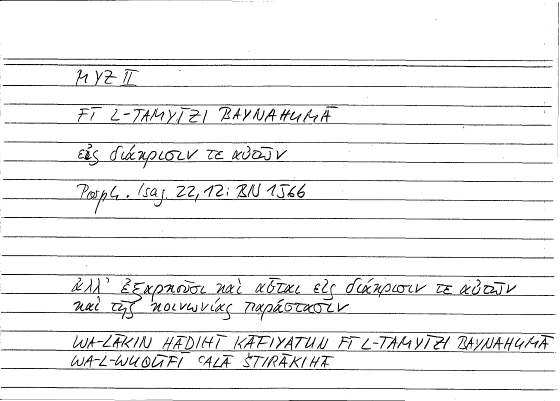 MYZ II
FĪ L-TAMYĪZI BAYNAHUMĀ
εἰς διάκρισιν τε αὐτῶν
Porph. Isag. 22,12: BN 1566
ἀλλ' ἐξαρκοῦσι καὶ αὗται εἰς διάκρισιν τε αὐτῶν
καὶ τῆς κοινωνίας παράστασιν
WA-LĀKIN HĀḎIHĪ KĀFIYATUN FĪ L-TAMYĪZI BAYNAHUMĀ
WA-L-WUQŪFI ʿALĀ ŠTIRĀKIHĀ